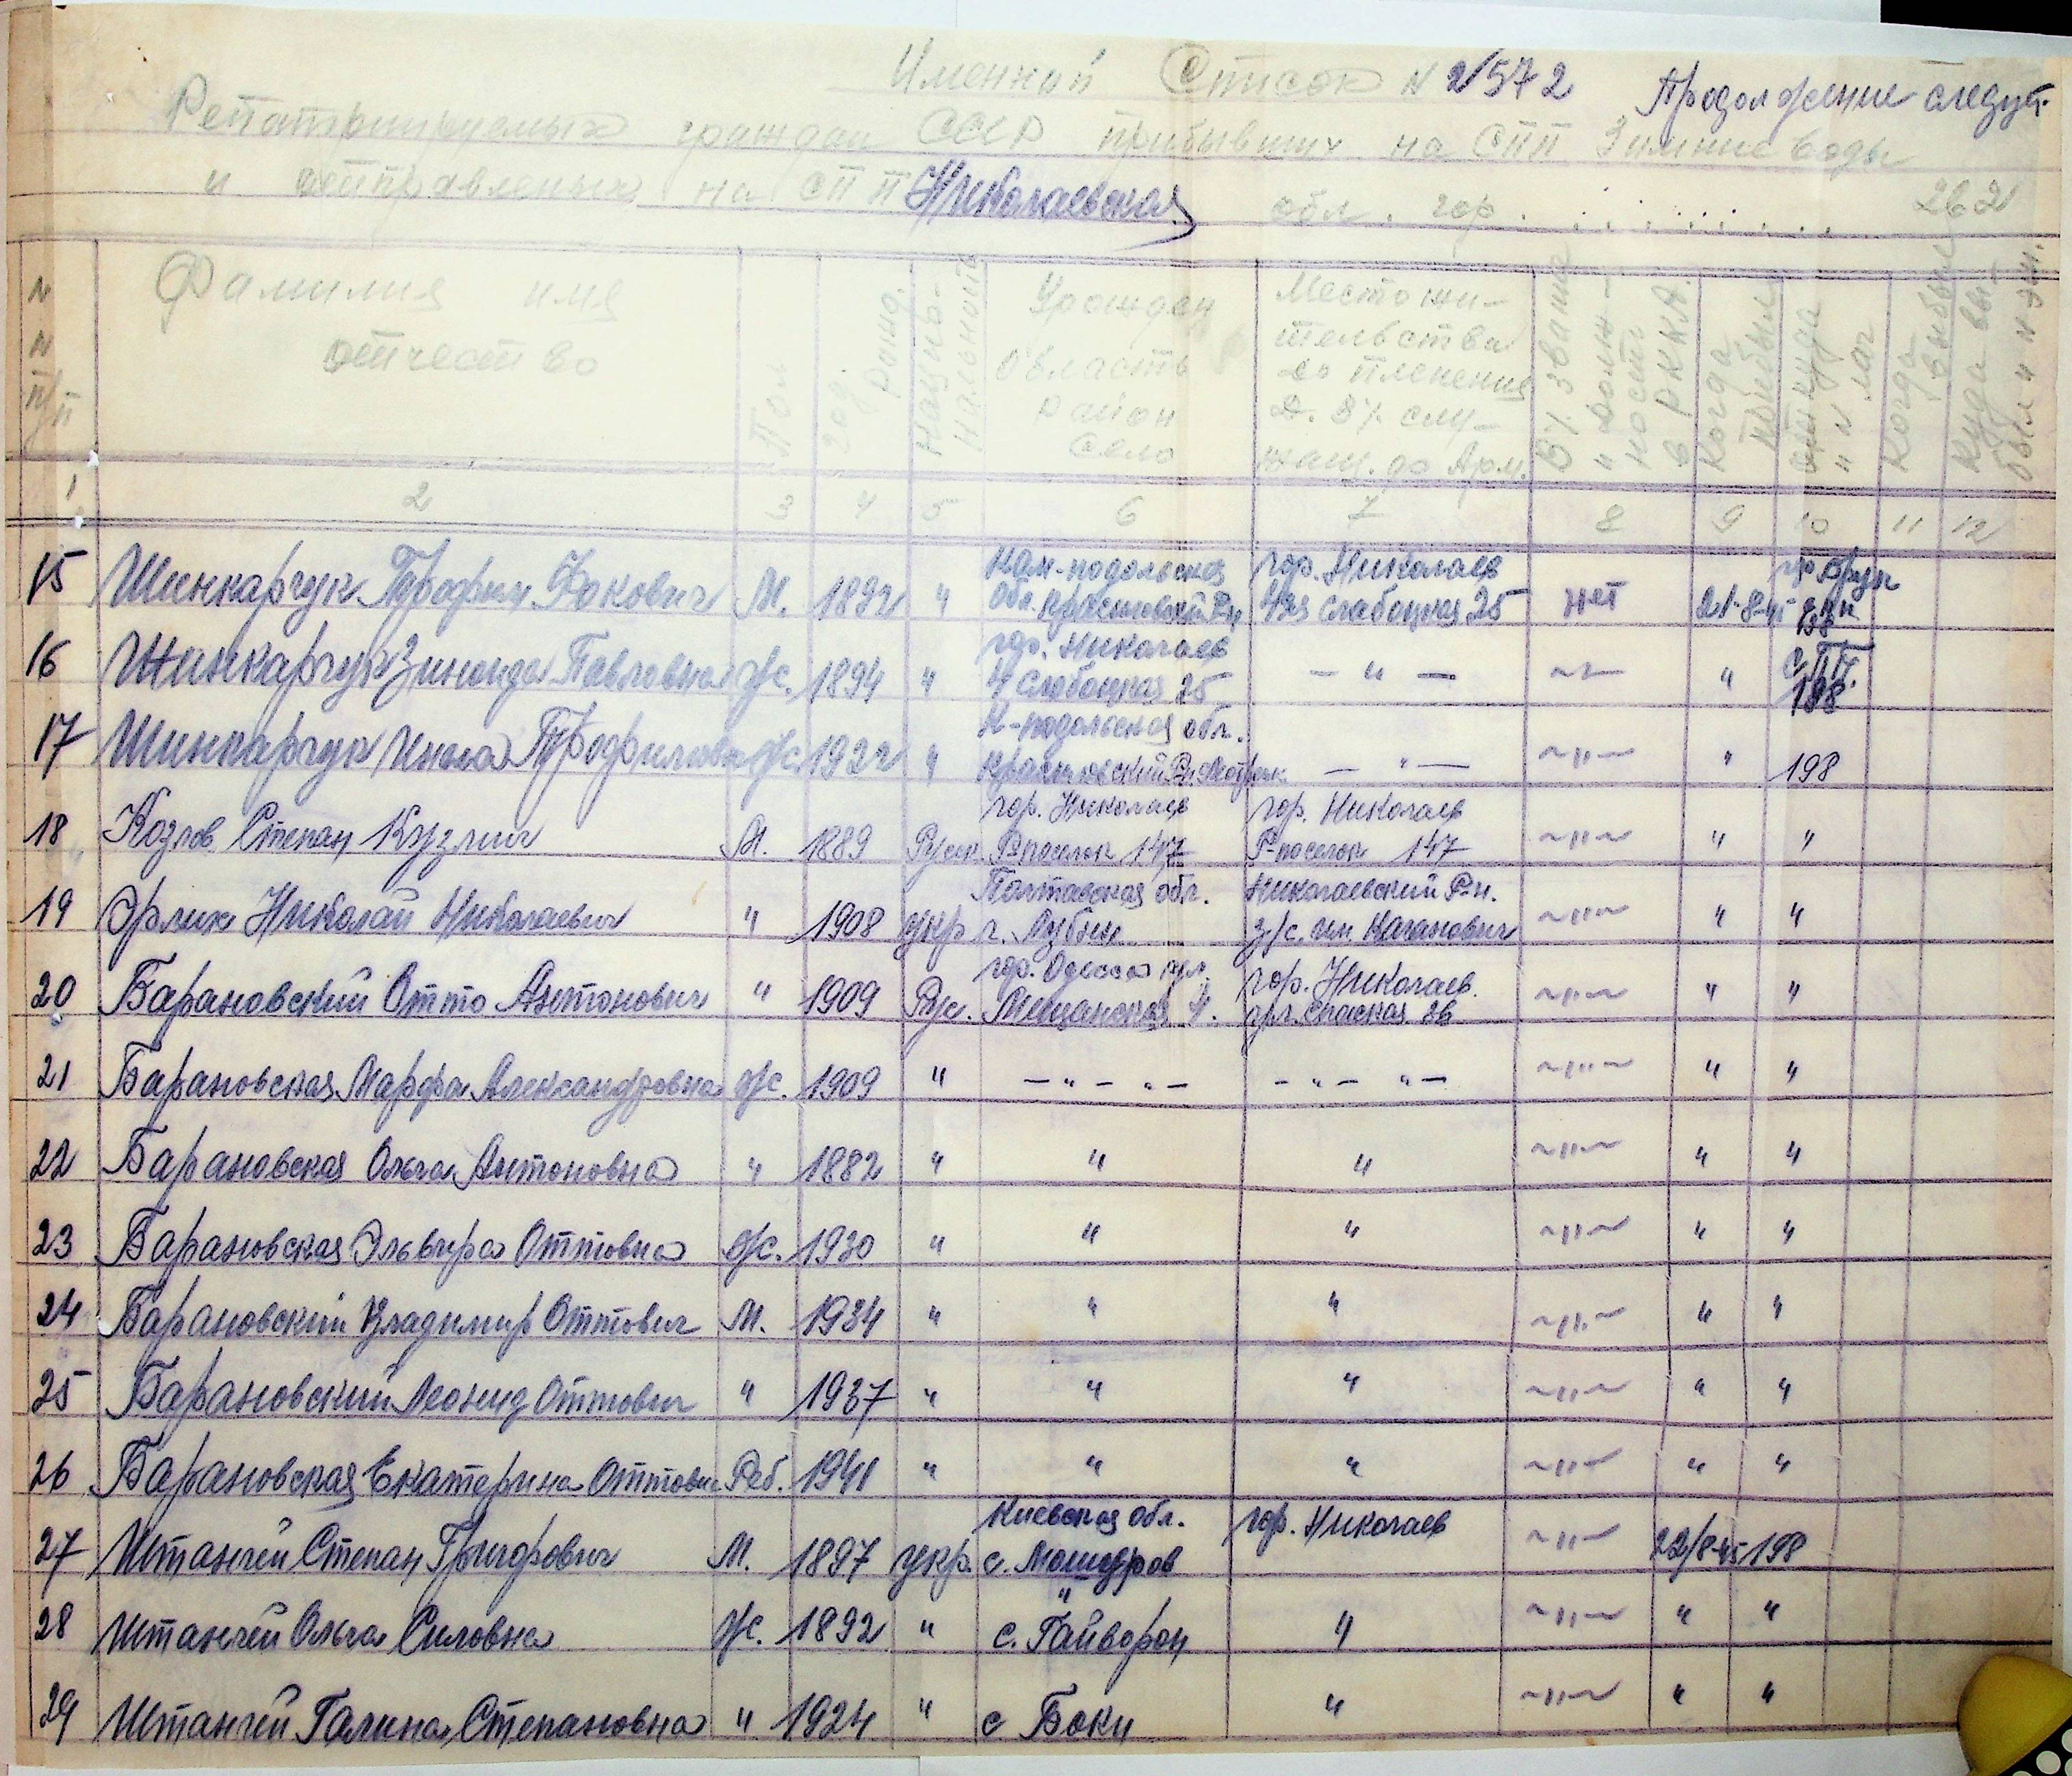 Именной Список N 2/572 Продолжение следует
Репатриируемых граждан СССР прибывших на СПП Зимние Воды
и отправленных на СПП Николаевская обл. гор. 2621
N N п/п Фамилия имя отчество Пол год рожд. Национальность Урожден Область район село Место жительства до пленения д. в/служащ. до Арм. В/звание и должность в РККА Когда прибыл откуда и N лаг Когда выбыл куда выбыл и N эш.
1 2 3 4 5 6 7 8 9 10 11 12
15 Шинкарчук Трофим Фокович М. 1892 " Кам-подольская обл. гор. Николаев 4ая слабоцкая 25 нет 21-8-45 198
16 Шинкарчук Зинаида Павловна ж. 1894 " гор. Николаев 4 Слабоцкая 25 — " — " СПП. 198
17 Шинкарчук Трофимовна ж. 1922 " К-подольская обл. — " — ~"~ " 198
18 Козлов Степан Кузмич М. 1889 Русск. гор. Николаев Р-поселок 147 гор. Николаев Р-поселок 147 ~"~ " "
19 Орлик Николай Николаевич " 1908 укр. Полтавская обл. г. Николаевский Р-н. з/с. им. Кагановича ~"~ " "
20 Барановский Отто Антонович " 1909 Рус. гор. Одесса ул. Мещанская 4. гор. Николаев. ул. Спаская 36 ~"~ " "
21 Барановская Марфа Александровна ж. 1909 " — " — " — — " — " — ~"~ " "
22 Барановская Ольга Антоновна " 1882 " " " ~"~ " "
23 Барановская Эльвира Оттовна ж. 1930 " " " ~"~ " "
24 Барановский Владимир Оттович М. 1934 " " " ~"~ " "
25 Барановский Леонид Оттович " 1937 " " " ~"~ " "
26 Барановская Екатерина Оттовна Реб. 1941 " " " ~"~ " "
27 Штангей Степан Григорович М. 1897 укр. Киевская обл. с. гор. Николаев ~"~ 22/8-45 198
28 Штангей Ольга Силовна ж. 1892 " " с. Гайворон " ~"~ " "
29 Штангей Галина Степановна " 1924 " с Боки " ~"~ " "